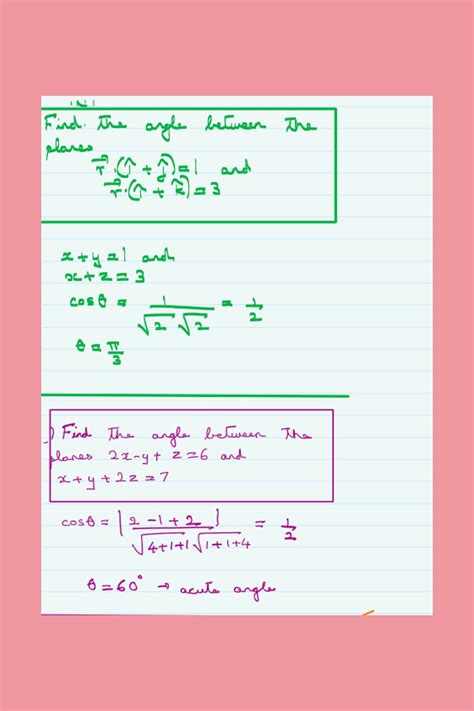 Find the angle between the
planes
r⃗·(î + ĵ)=1 and
r⃗·(î + k̂)=3
x+y=1 and
x+z=3
cosθ = 1/(√2 √2) = 1/2
θ = π/3
) Find the angle between the
planes 2x-y+z=6 and
x+y+2z=7
cosθ = |2-1+2|/(√4+1+1 √1+1+4) = 1/2
θ=60° → acute angle